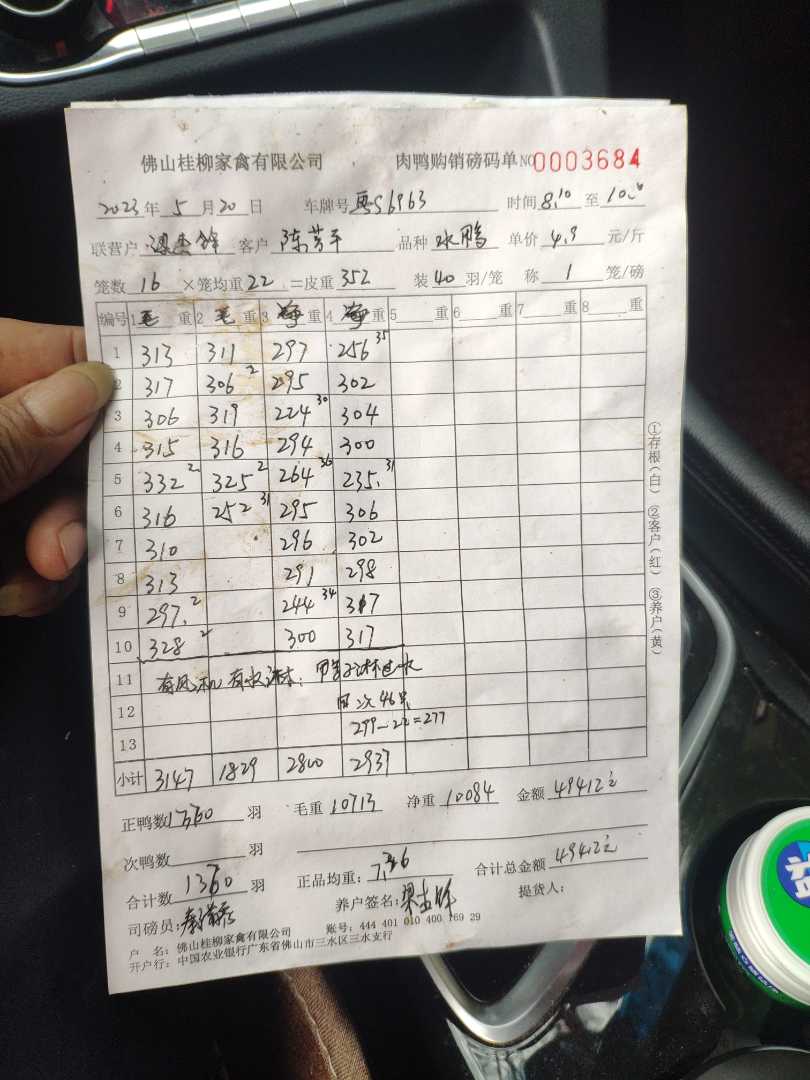 佛山桂柳家禽有限公司 肉鸭购销磅码单 NO 0003684
2023 年 5 月 20 日 车牌号 粤S6963 时间 8.10 至
联营户 客户 陈芳平 品种 水鸭 单价 4.9 元/斤
笼数 16 ×笼均重 22 =皮重 352 装 40 羽/笼 称 1 笼/磅
编号 1 毛 重 2 毛 重 3 净 重 4 净 重 5 重 6 重 7 重 8 重
1 313 311 297 256 35
2 317 306 2 295 302
3 306 319 224 30 304
4 315 316 294 300
5 332 2 325 2 264 36 235. 31
6 316 252 31 295 306
7 310 296 302
8 313 291 298
9 297. 2 244 34 317
10 328 2 300 317
11 有风机 有水淋.
12 次46只
299-22=277
13
小计 3147 1829 2800 2937
正鸭数 1360 羽 毛重 10713 净重 10084 金额 49412元
次鸭数 羽
合计数 1360 羽 正品均重: 合计总金额 49412元
司磅员: 养户签名: 提货人:
户 名: 佛山桂柳家禽有限公司 账号: 444 401 010 400 169 29
开户行: 中国农业银行广东省佛山市三水区三水支行
①存根(白) ②客户(红) ③养户(黄)